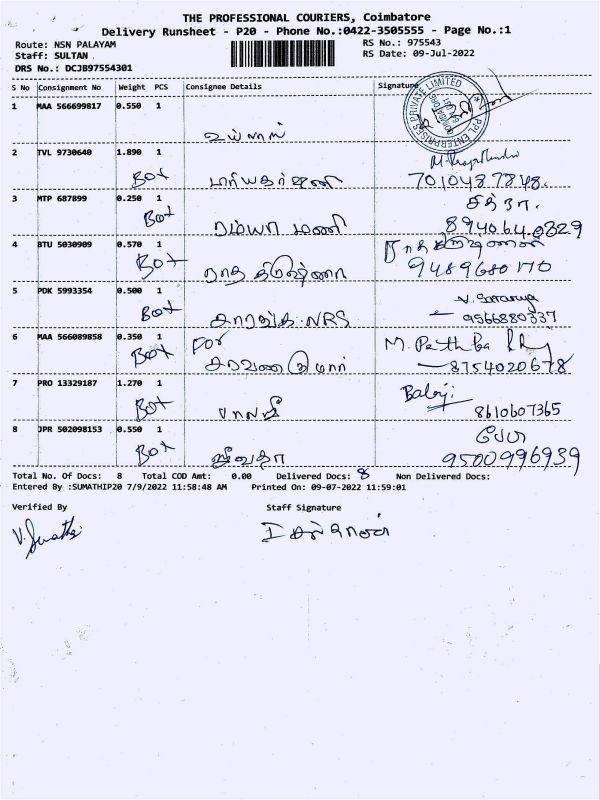 THE PROFESSIONAL COURIERS, Coimbatore
Delivery Runsheet - P20 - Phone No.:0422-3505555 - Page No.:1
Route: NSN PALAYAM RS No.: 975543
Staff: SULTAN . RS Date: 09-Jul-2022
DRS No.: DCJB97554301
S No Consignment No Weight PCS Consignee Details Signature
1 MAA 566699817 0.550 1
PPL ENTERPRISES PRIVATE LIMITED
2 TVL 9730640 1.890 1
Box 701048 7848.
3 MTP 687899 0.250 1 சித்ரா.
Box ரம்யா மணி 894064 0829
4 BTU 5030909 0.570 1 ராதகிருஷ்ணன்
Box ராதகிருஷ்ணா 9489680170
5 PDK 5993354 0.500 1 V. Saranya
Box NRS 9566880337
6 MAA 566089858 0.350 1 For M.
Box சரவணகுமார் 8754020678
7 PRO 13329187 1.270 1 Balaji
Box பாலாஜி 8610607365
8 JPR 502098153 0.550 1
Box ஜீவதா 9500996939
Total No. Of Docs: 8 Total COD Amt: 0.00 Delivered Docs: 8 Non Delivered Docs:
Entered By :SUMATHIP20 7/9/2022 11:58:48 AM Printed On: 09-07-2022 11:59:01
Verified By Staff Signature
V. Sumathi